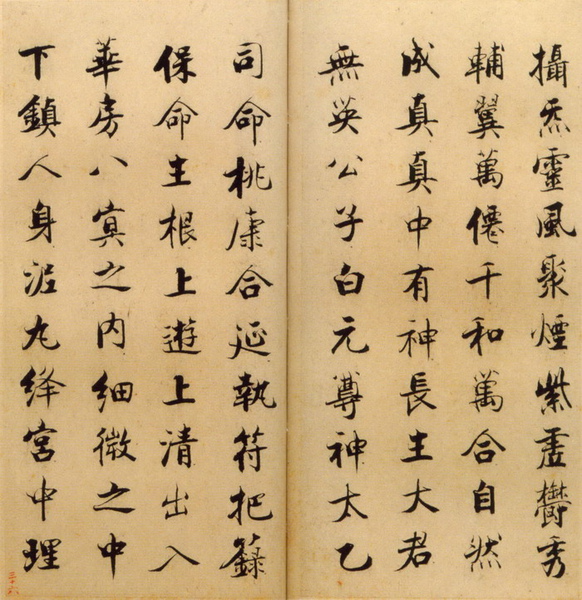 攝炁靈風聚煙紫虛欝秀
輔翼萬僊千和萬合自然
成真真中有神長生大君
無英公子白元尊神太乙
司命桃康合延執符把籙
保命生根上遊上清出入
華房八冥之內細微之中
下鎮人身泥丸絳宮中理
三六